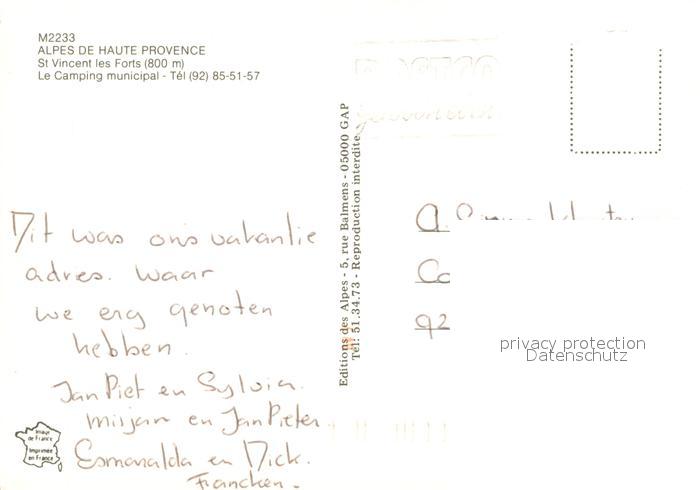 M2233
ALPES DE HAUTE PROVENCE
St Vincent les Forts (800 m)
Le Camping municipal - Tél (92) 85-51-57
Editions des Alpes - 5, rue Balmens - 05000 GAP
Tél: 51.34.73 - Reproduction interdite
Dit was ons vakantie
adres. waar
we erg genoten
hebben.
Jan Piet en Sylvia.
Mirjam en Jan Pieter
Esmaralda en Dick.
Francken.
Image
de France
Imprimée
en France
privacy protection
Datenschutz